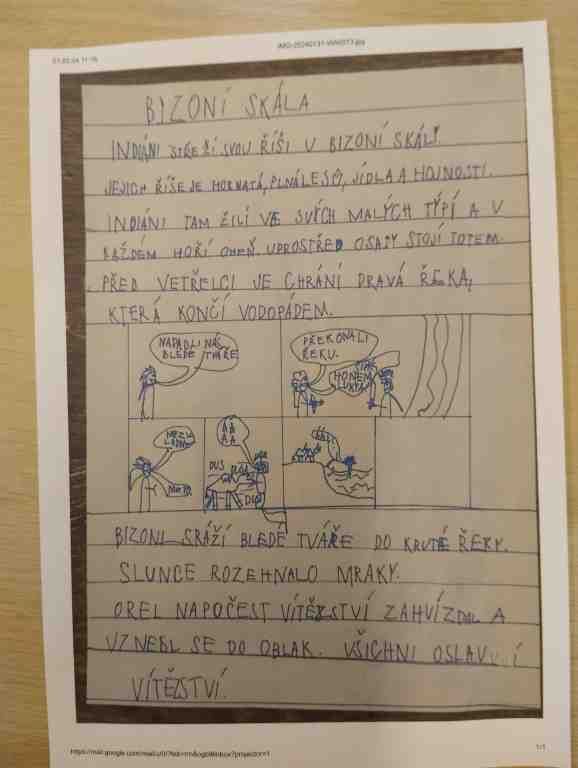 IMG-20240131-WA0013.jpg
BIZONÍ SKÁLA
INDIÁNI STŘEŽÍ SVOU ŘÍŠI V BIZONÍ SKÁLE
JEJICH ŘÍŠE JE HORNATÁ, PLNÁ LESŮ, JÍDLA A HOJNOSTI.
INDIÁNI TAM ŽILI VE SVÝCH MALÝCH TÝPÍ A V
KAŽDÉM HOŘÍ OHEŇ. UPROSTŘED OSADY STOJÍ TOTEM.
PŘED VETŘELCI JE CHRÁNÍ DRAVÁ ŘEKA,
KTERÁ KONČÍ VODOPÁDEM.
NAPADLI NÁS
BLEDÉ TVÁŘE
PŘEKONALI
ŘEKU.
HONEM
DUS
BIZONI SRÁŽÍ BLEDÉ TVÁŘE DO KRUTÉ ŘEKY.
SLUNCE ROZEHNALO MRAKY.
OREL NAPOČEST VÍTĚZSTVÍ ZAHVÍZDAL A
VZNESL SE DO OBLAK. VŠICHNI OSLAVUJÍ
VÍTĚZSTVÍ.
1/1